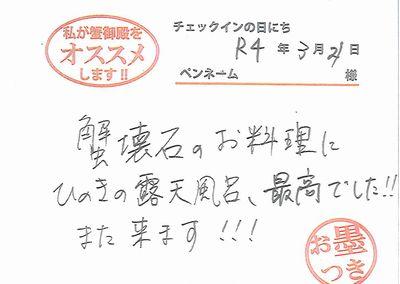 私が蟹御殿を
オススメ
します!!
チェックインの日にち
R4 年 3 月 21 日
ペンネーム 様
蟹壊石のお料理に
ひのきの露天風呂、最高でした!!
また来ます!!!
お墨
つき